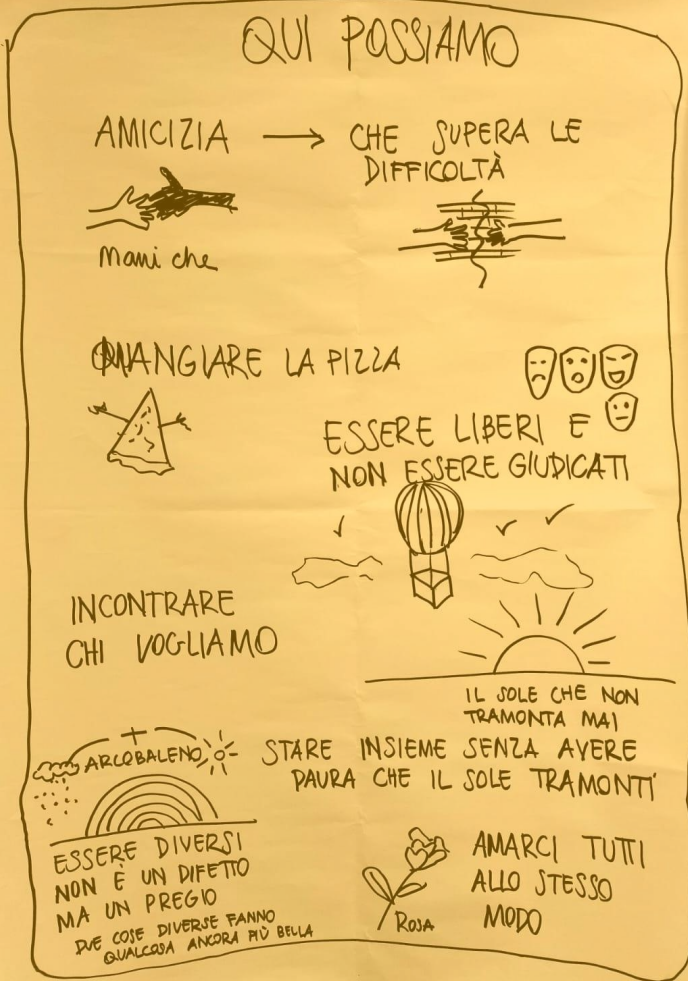 QUI POSSIAMO
AMICIZIA → CHE SUPERA LE
DIFFICOLTÀ
Mani che
MANGIARE LA PIZZA
ESSERE LIBERI E
NON ESSERE GIUDICATI
INCONTRARE
CHI VOGLIAMO
IL SOLE CHE NON
TRAMONTA MAI
STARE INSIEME SENZA AVERE
PAURA CHE IL SOLE TRAMONTI
+
ARCOBALENO
ESSERE DIVERSI
NON È UN DIFETTO
MA UN PREGIO
DUE COSE DIVERSE FANNO
QUALCOSA ANCORA PIÙ BELLA
ROSA
AMARCI TUTTI
ALLO STESSO
MODO